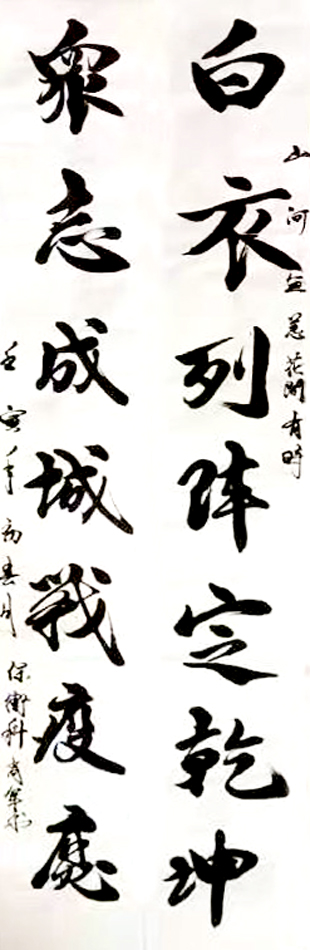 山河無恙花開有時
白衣列阵定乾坤
眾志成城戰疫魔
壬寅年初春月
保衛科肖年